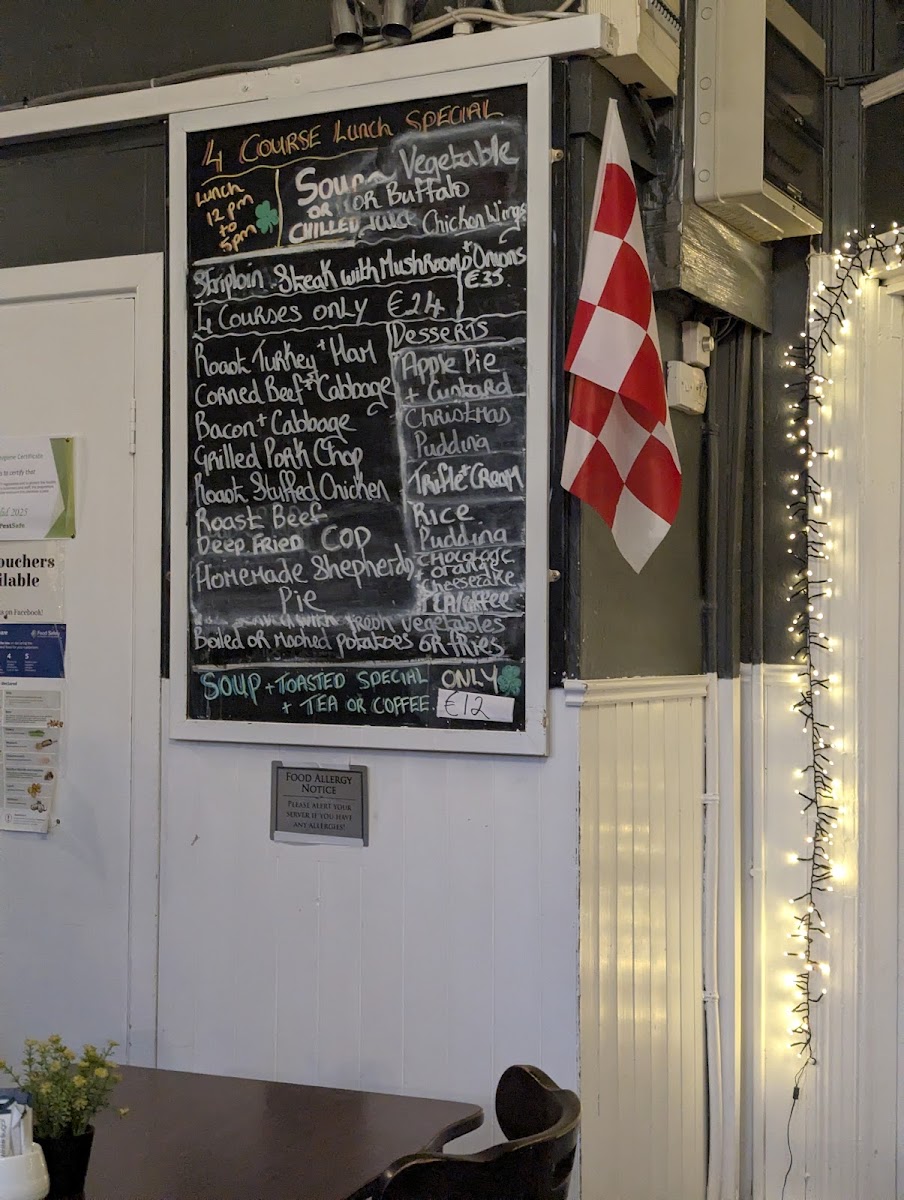 4 COURSE Lunch SPECIAL
Lunch
12 pm
to
5pm
Soup Vegetable
OR OR Buffalo
CHILLED JUICE Chicken Wings
Striploin Steak with Mushroom + Onions
€35
4 Courses only €24
Roast Turkey + Ham
Corned Beef + Cabbage
Bacon + Cabbage
Grilled Pork Chop
Roast Stuffed Chicken
Roast Beef
Deep Fried COD
Homemade Shepherds
Pie
DESSERTS
Apple Pie
+ Custard
Christmas
Pudding
Trifle + Cream
Rice
Pudding
CHOCOLATE
+ orange
cheesecake
TEA/Coffee
with fresh vegetables
Boiled or Mashed potatoes or fries
SOUP + TOASTED SPECIAL ONLY
+ TEA OR COFFEE. €12
FOOD ALLERGY
NOTICE
PLEASE ALERT YOUR
SERVER IF YOU HAVE
ANY ALLERGIES!
ygiene Certificate
to certify that
2025
PestSafe
ouchers
ilable
on Facebook!
4 5